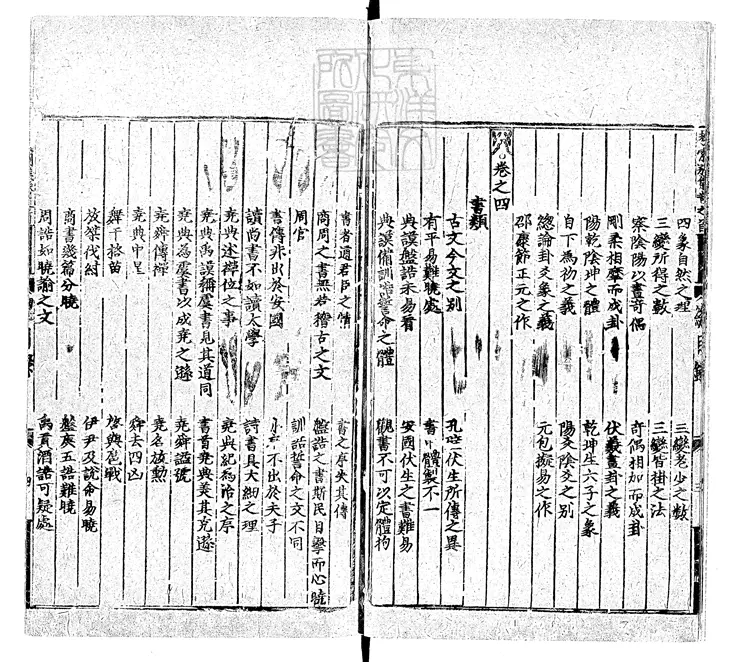 四象自然之理
三變老少之數
三變所得之數
三變皆掛之法
察陰陽以畫奇偶
奇偶相加而成卦
剛柔相摩而成卦
伏羲畫卦之義
陽乾陰坤之體
乾坤生六子之象
自下為初之義
陽爻陰爻之別
總論卦爻象之義
元包擬易之作
邵康節正元之作
卷之四
書類
古文今文之別
孔 伏生所傳之異
有平易難曉處
書 體製不一
典謨盤誥未易看
安國伏生之書難易
典謨備訓誥誓命之體
觀書不可以定體拘
書者道君臣之情
書之序失其傳
商周之書無若稽古之文
盤誥之書斯民目擊而心曉
周官
訓誥誓命之文不同
書傳非出於安國
不出於夫子
讀尚書不如讀大學
詩書具大綱之理
堯典述禪位之事
堯典紀為治之序
堯典禹謨稱虞書見其道同
書首堯典美其克遜
堯典為虞書以成堯之遜
堯舜諡號
堯舜傳禪
堯名放勳
堯典中星
舜去四凶
舞干格苗
啟與扈戰
放桀伐紂
伊尹及說命易曉
商書幾篇分曉
盤庚五誥難曉
周誥如曉諭之文
禹貢酒誥可疑處